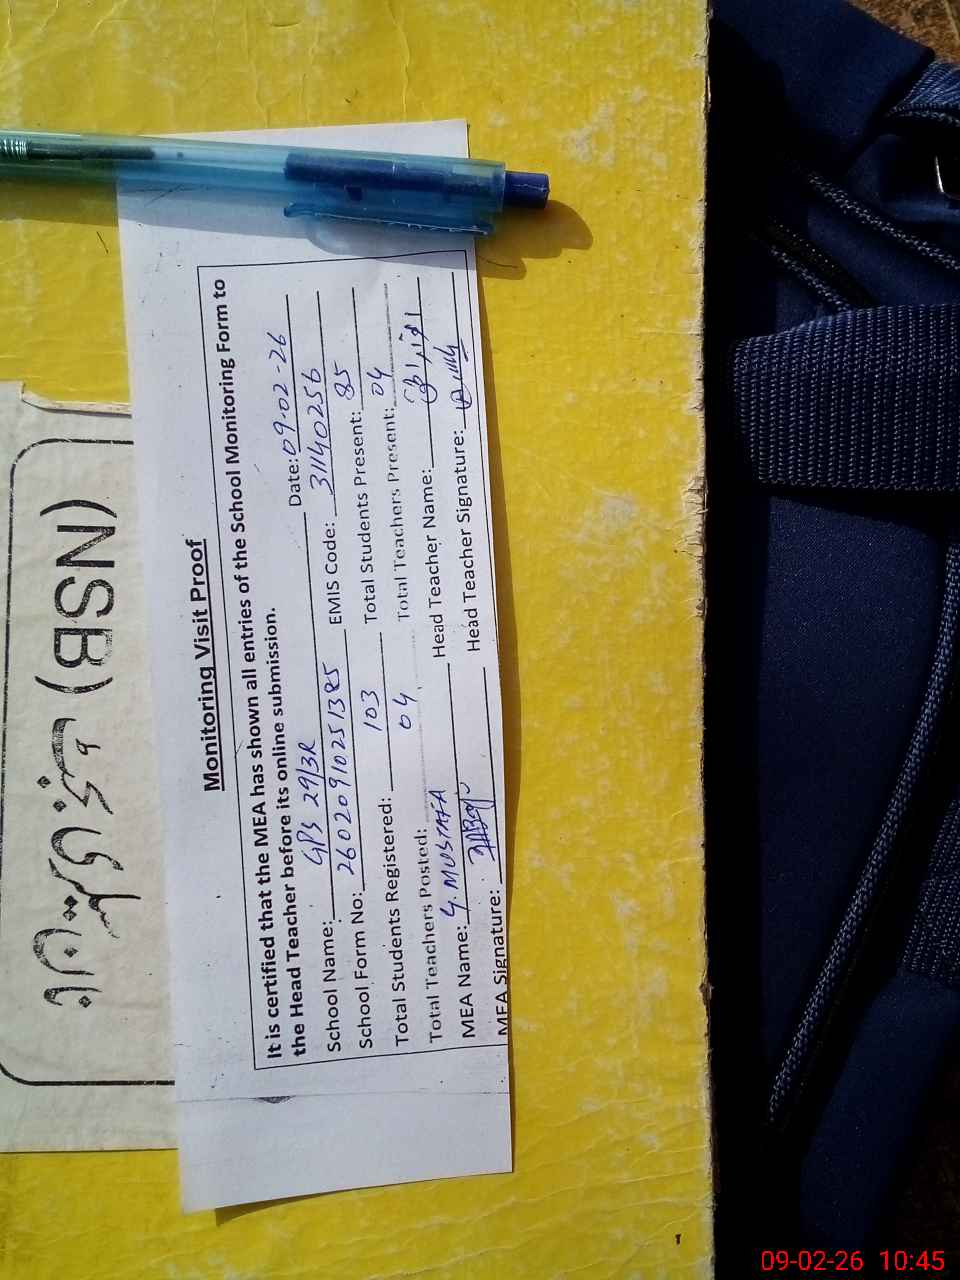 Monitoring Visit Proof
It is certified that the MEA has shown all entries of the School Monitoring Form to
the Head Teacher before its online submission.
Date: 09-02-26
School Name: GPS 29/3R EMIS Code: 31140256
School Form No: 26020910251385 Total Students Present: 85
Total Students Registered: 103 Total Teachers Present: 04
Total Teachers Posted: 04 Head Teacher Name:
MEA Name: G. MUSTAFA Head Teacher Signature:
MEA Signature:
(NSB)
09-02-26 10:45